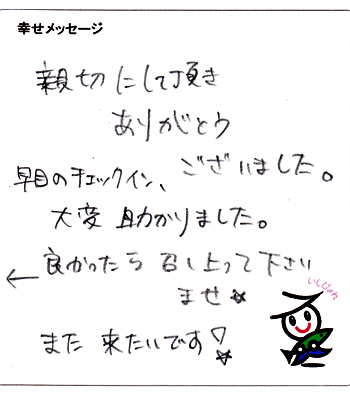 幸せメッセージ
親切にして頂き
ありがとう
ございました。
早目のチェックイン、
大変助かりました。
良かったら召し上って下さい
ませ☆
いしぴょん
また来たいです♡